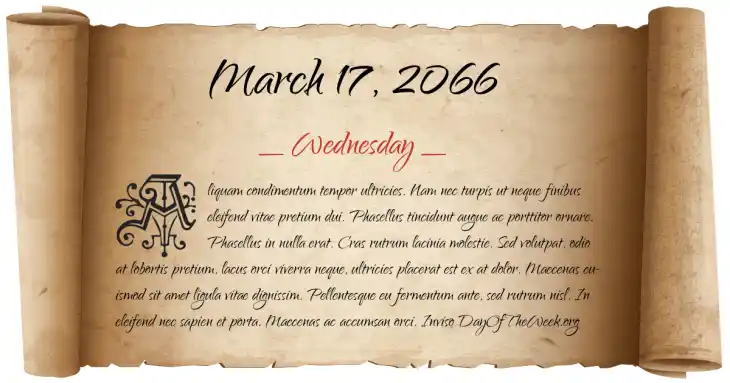 March 17, 2066
_ Wednesday _
Aliquam condimentum tempor ultricies. Nam nec turpis ut neque finibus
eleifend vitae pretium dui. Phasellus tincidunt augue ac porttitor ornare.
Phasellus in nulla erat. Cras rutrum lacinia molestie. Sed volutpat, odio
at lobortis pretium, lacus orci viverra neque, ultricies placerat est ex at dolor. Maecenas eu-
ismod sit amet ligula vitae dignissim. Pellentesque eu fermentum ante, sed rutrum nisl. In
eleifend nec sapien et porta. Maecenas ac accumsan orci. Invisq DayOfTheWeek.org